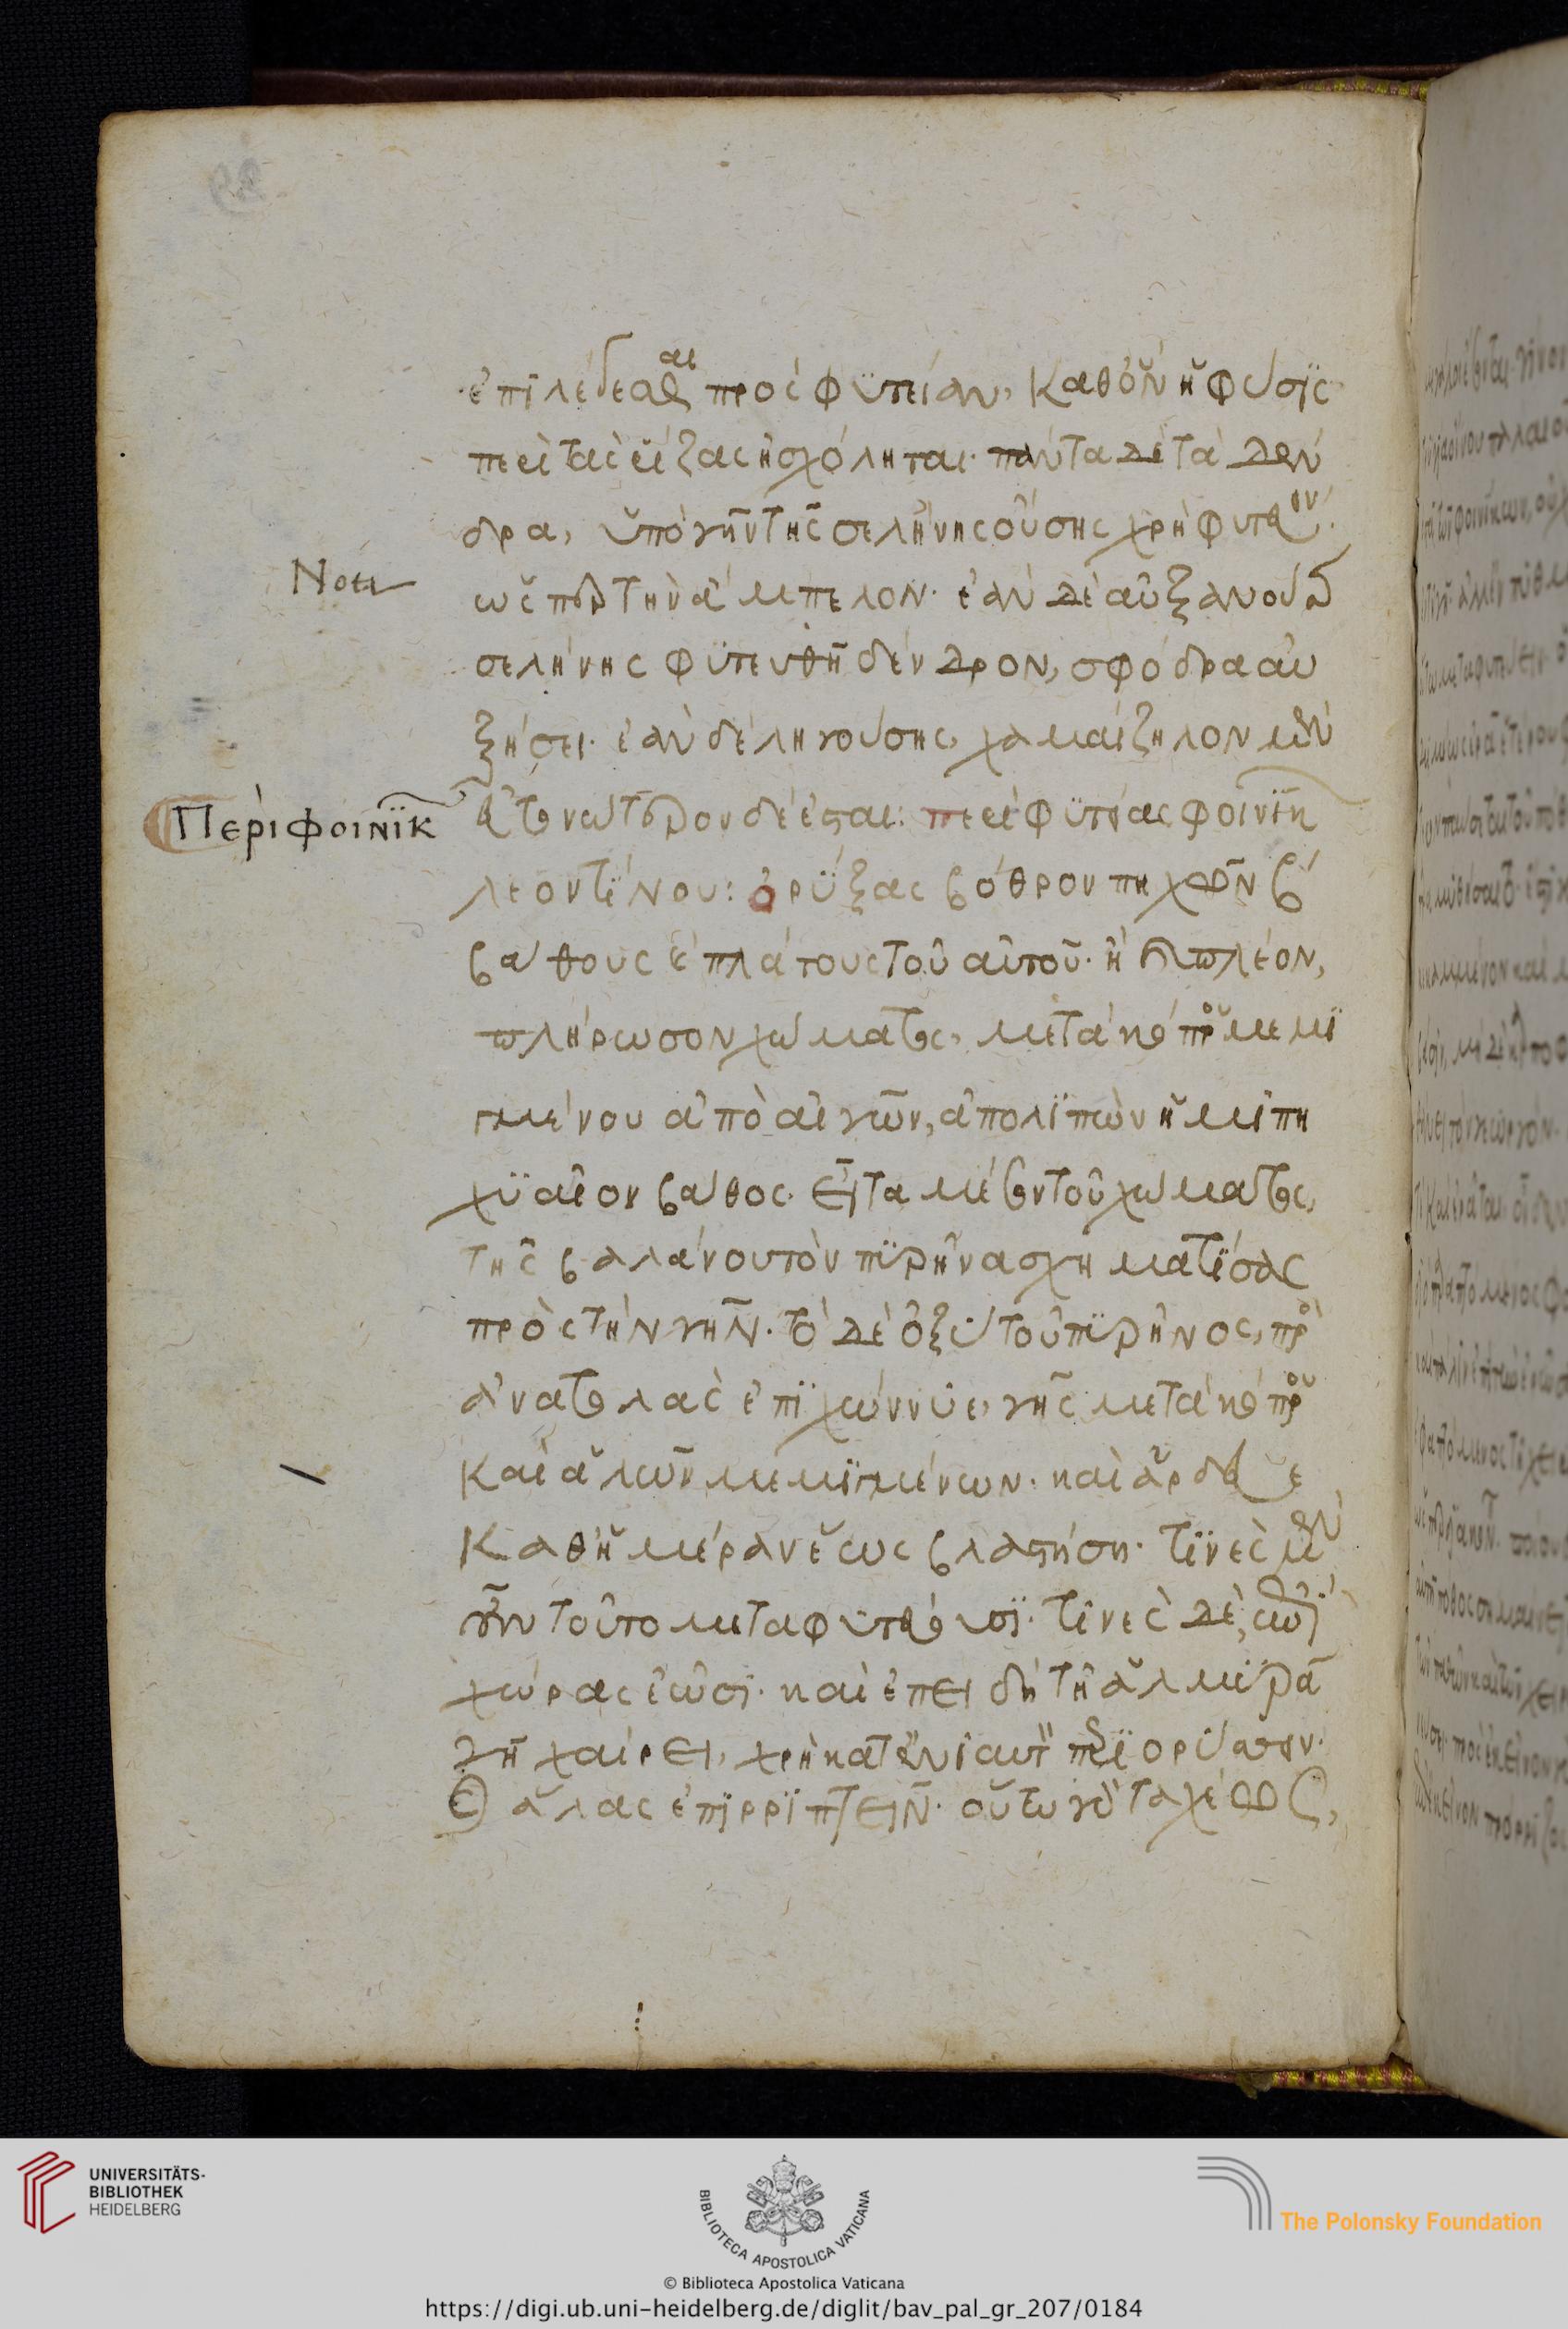 ἐπιτήδειαι πρὸς φυτείαν, καθὃν ἡ φύσις
περὶ τὰς ῥίζας ἠσχόληται. πάντα δὲ τὰ δέν
δρα, ὑπὸ γῆν τῆς σελήνης οὔσης χρὴ φυτεύειν.
Nota
ὥσπερ τὴν ἄμπελον. ἐὰν δὲ αὐξανούσης
σελήνης φυτευθῆ δένδρον, σφόδρα αὐ
ξήσει. ἐὰν δὲ ληγούσης, χαμαίζηλον μὲν
Περὶ φοινίκων
εὐτονώτερον δὲ ἔσται: περὶ φυτείας φοινίκων
λεοντίνου: ὀρύξας βόθρον πηχῶν β
βάθους καὶ πλάτους τοῦ αὐτοῦ. ἢ καὶ πλέον,
πλήρωσον χώματος, μετὰ κόπρου μεμι
γμένου ἀπὸ αἰγῶν, ἀπολιπὼν ἡμιπη
χυαῖον βάθος. εἶτα μέσον τοῦ χώματος,
τῆς βαλάνου τὸν πυρῆνα σχηματίσας
πρὸς τὴν γῆν. τὸ δὲ ὀξὺ τοῦ πυρῆνος, πρὸς
ἀνατολὰς ἐπιχώννυε, γῆς μετὰ κόπρου
καὶ ἁλῶν μεμιγμένων. καὶ ἄρδευε
καθημέραν ἕως βλαστήση. τινὲς μὲν
οὖν τοῦτο μεταφυτεύουσι. τινὲς δὲ,
χώρας ἐῶσι. καὶ ἐπειδὴ τῆ ἁλμυρᾶ
γῆ χαίρει, χρὴ κατενιαυτὸν περιορύσσειν.
καὶ ἅλας ἐπιρρίπτειν. οὕτω γὰρ ταχέως,
UNIVERSITÄTS-
BIBLIOTHEK
HEIDELBERG
BIBLIOTECA APOSTOLICA VATICANA
The Polonsky Foundation
© Biblioteca Apostolica Vaticana
https://digi.ub.uni-heidelberg.de/diglit/bav_pal_gr_207/0184